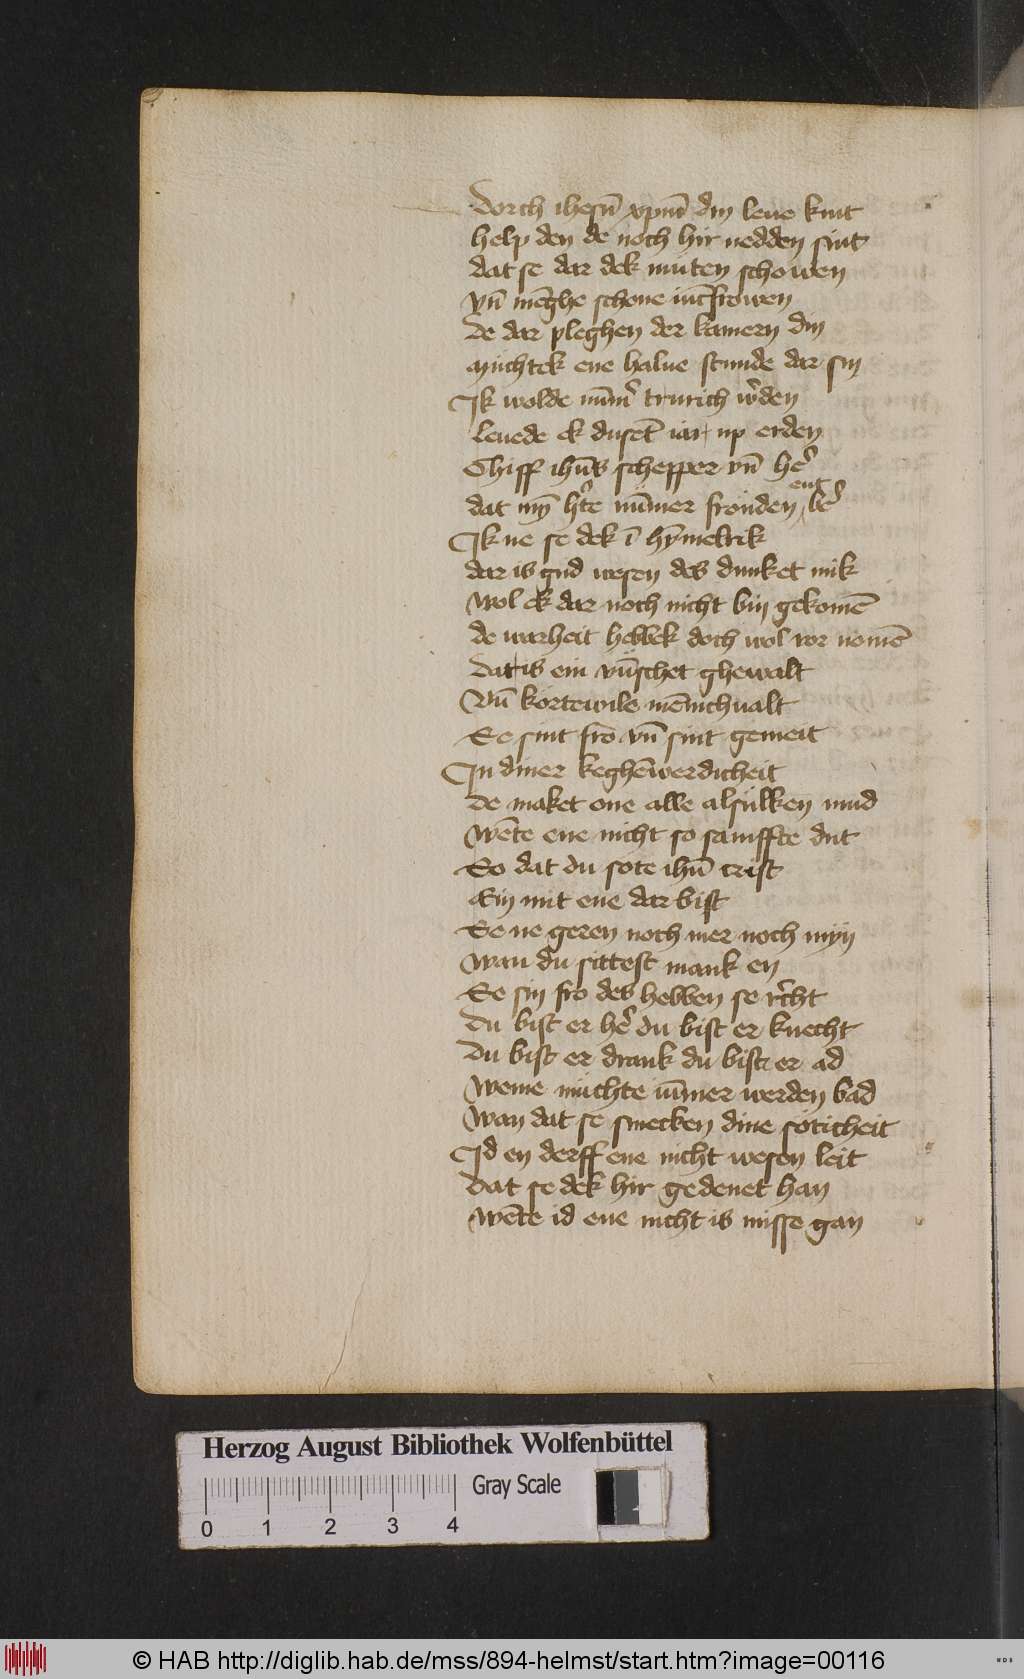 Dorch ihesu̅ xpm̅ din leue kint
help den de noch hir nedden sint
dat se dar dek muten schowen
vn̅ me̅ghe schone iu̅cfrowen
de dar pleghen der kamern din
Muchtek ene halue stunde dar sin
Ik wolde nu̅m̉ trurich w̉den
leuede ek duset̅ iar up erden
Chiff ihu̅s schepper vn̅ hẻ
dat my̅ h̉te nu̅mer frouden ent bẻ
Ik ne se dek i̅ hy̅melrik
dar is gud wesen des dunket mik
Wol ek dar noch nicht bin gekome̅
de warheit hebbek doch wol vor nome̅
Dat is ein vu̅schet ghewalt
Vn̅ kortewile me̅nichualt
Se sint fro vn̅ sint gemeit
In diner keghe̅werdicheit
de maket one alle alsulken mud
We̅te ene nicht so sanffte dut
So dat du sote ihu̅ crist
Ein mit ene dar bist
Se ne geren noch mer noch myn
Wan du sittest mank en
Se sin fro des hebben se r̉cht
Du bist er hẻ du bist er knecht
Du bist er drank du bist er ad
Weme muchte iu̅mer werden bad
Wan dat se smecken dine soticheit
Id en derff ene nicht wesen leit
Dat se dek hir gedenet han
We̅te id ene nicht is misse gan
Herzog August Bibliothek Wolfenbüttel
Gray Scale
0 1 2 3 4
© HAB http://diglib.hab.de/mss/894-helmst/start.htm?image=00116